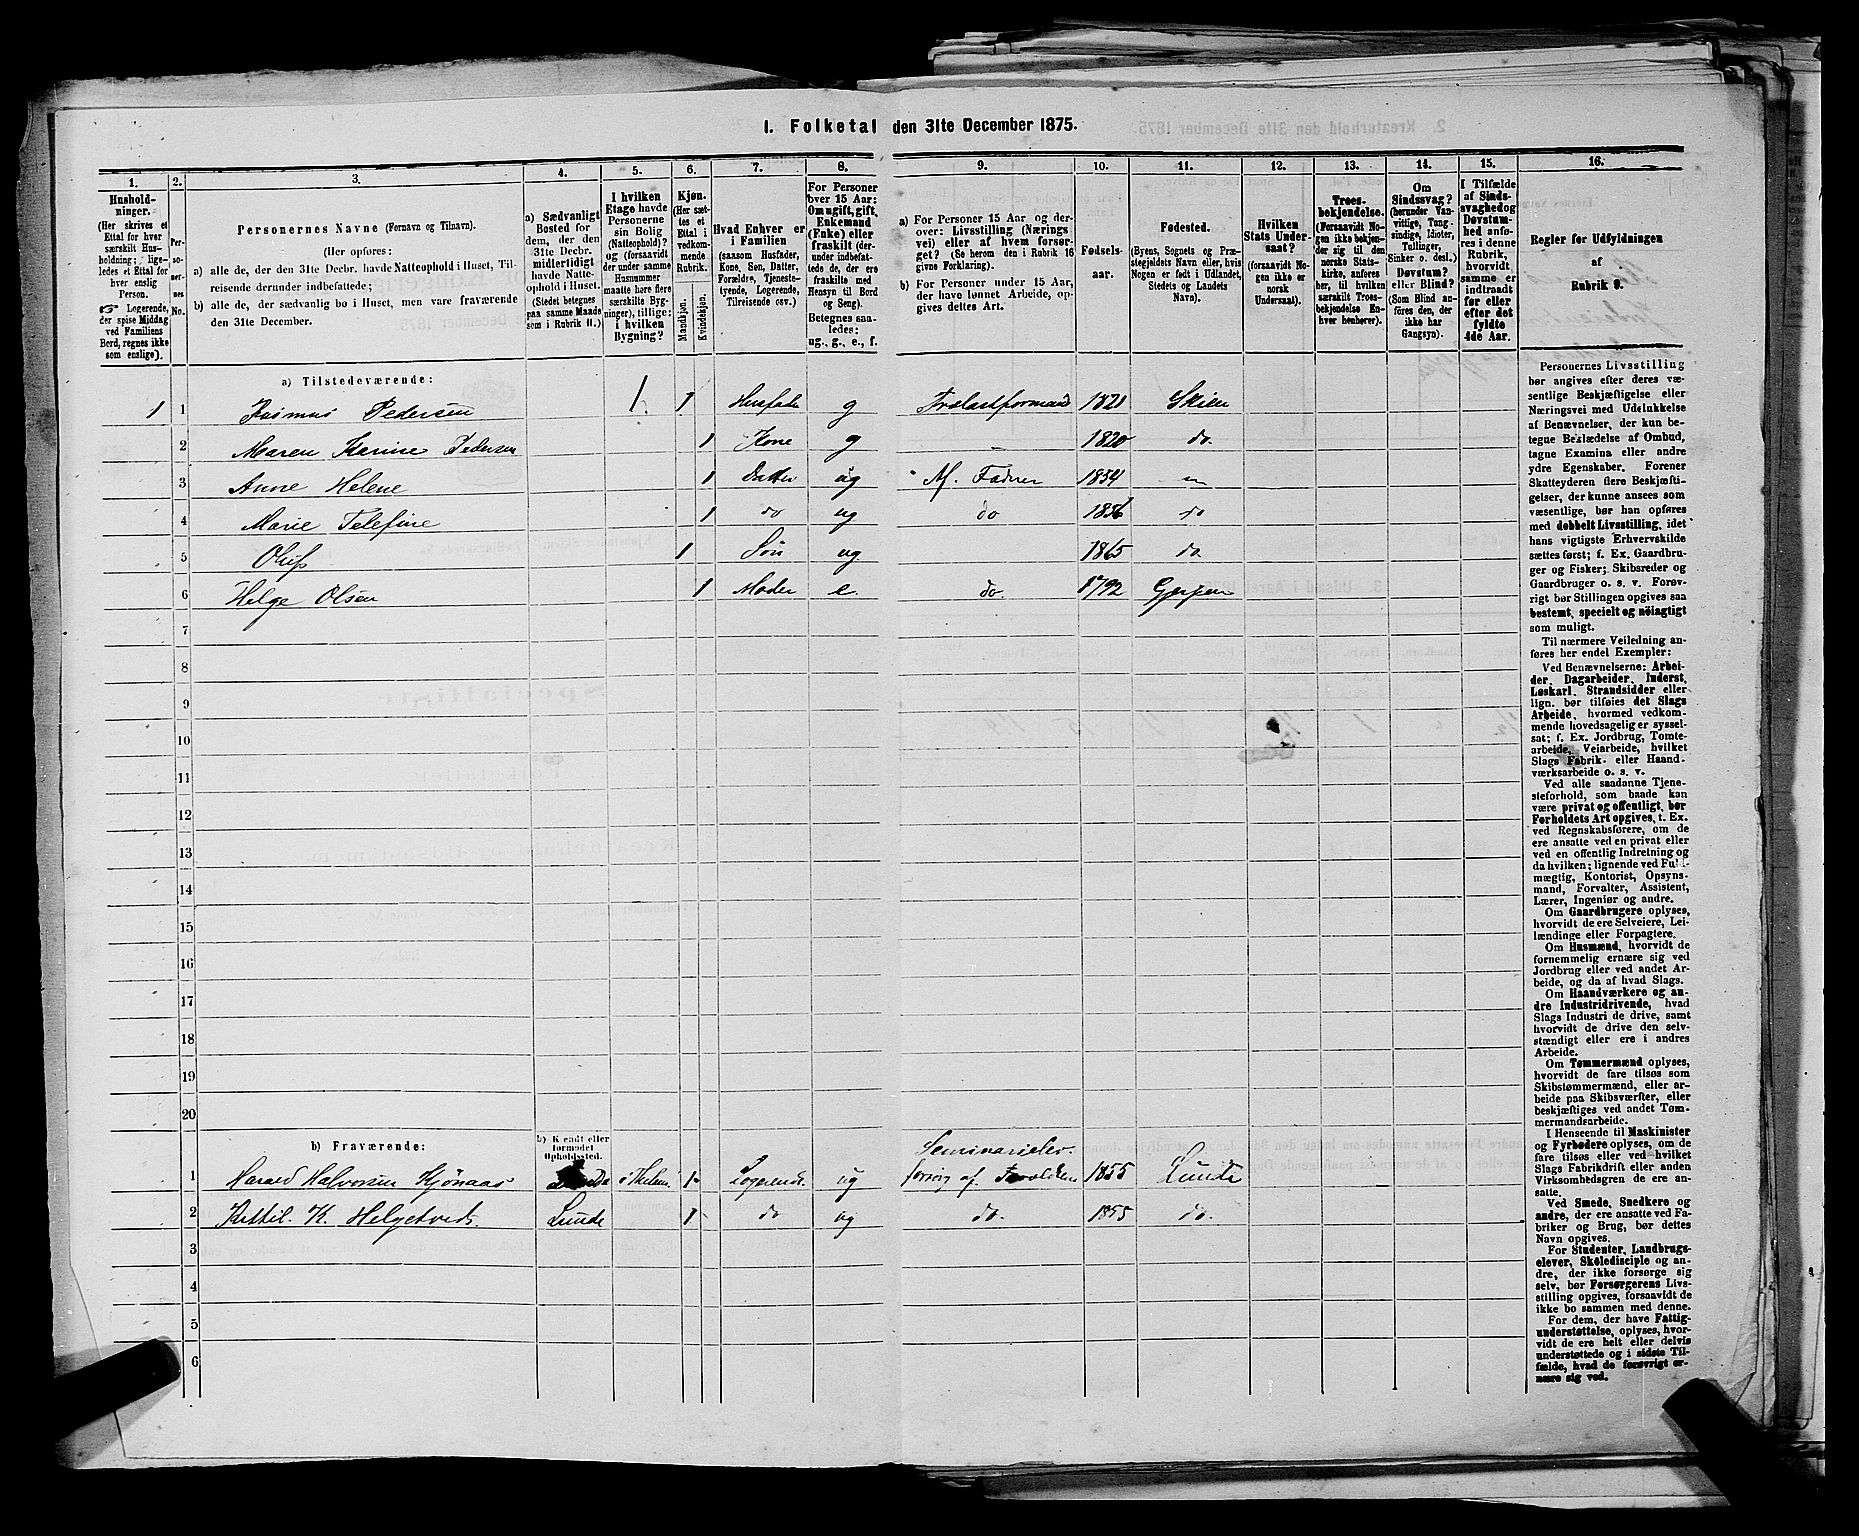 1. Folketal den 31te December 1875.
1. 2. 3. 4. 5. 6. 7. 8. 9. 10. 11. 12. 13. 14. 15. 16.
Hushold-
ninger.
(Her skrives et
Ettal for hver
særskilt Hus-
holdning; lige-
ledes et Ettal for
hver enslig
Person.
Logerende,
der spise Middag
ved Familiens
Bord, regnes ikke
som enslige).
Per-
so-
ner-
nes
No.
Personernes Navne (Fornavn og Tilnavn).
(Her opføres:
a) alle de, der den 31te Decbr. havde Natteophold i Huset, Til-
reisende derunder indbefattede;
b) alle de, der sædvanlig bo i Huset, men vare fraværende
den 31te December.
a) Sædvanligt
Bosted for
dem, der den
31te Decbr.
midlertidigt
havde Natte-
ophold i Huset.
(Stedet betegnes
paa samme Maade
som i Rubrik 11.)
I hvilken
Etage havde
Personerne
sin Bolig
(Natteophold)?
og (forsaavidt
der under samme
Husnummer
maatte høre flere
særskilte Byg-
ninger), tillige:
i hvilken
Bygning?
Kjøn.
(Her sæt-
tes et
Ettal i
vedkom-
mende
Rubrik.
Mandkjøn.
Kvindekjøn.
Hvad Enhver er
i Familien
(saasom Husfader,
Kone, Søn, Datter,
Forældre, Tjeneste-
tyende, Logerende,
Tilreisende osv.)
For Personer
over 15 Aar:
Om ugift, gift,
Enkemand
(Enke) eller
fraskilt (der-
under indbefat-
tede de, der ere
fraskilte med
Hensyn til Bord
og Seng).
Betegnes saa-
ledes:
ug., g., e., f.
a) For Personer 15 Aar og der-
over: Livsstilling (Nærings-
vei) eller af hvem forsør-
get? (Se herom den i Rubrik 16
givne Forklaring).
b) For Personer under 15 Aar,
der have lønnet Arbeide, op-
gives dettes Art.
Fødsels-
aar.
Fødested.
(Byens, Sognets og Præ-
stegjeldets Navn eller, hvis
Nogen er født i Udlandet,
Stedets og Landets
Navn).
Hvilken
Stats Under-
saat?
(forsaavidt No-
gen ikke er
norsk
Undersaat).
Troes-
bekjendelse.
(Forsaavidt No-
gen ikke bekjen-
der sig til den
norske Stats-
kirke, anføres
her, til hvilken
særskilt Troes-
bekjendelse En-
hver henhører).
Om
Sindssvag?
(herunder Van-
vittige, Tung-
sindige, Idioter,
Tullinger,
Sinker o. desl.)
Døvstum?
eller Blind?
(Som Blind an-
føres den, der
ikke har
Gangsyn).
I Tilfælde
af Sinds-
svaghed og
Døvstum-
hed anfø-
res i denne
Rubrik,
hvorvidt
samme er
indtraadt
før eller
efter det
fyldte
4de Aar.
Regler for Udfyldningen
af
Rubrik 9.
a) Tilstedeværende:
1 1 Rasmus Pedersen 1. 1 Husfader g Trælastformand 1821 Skien
2 Maren Karine Pedersen 1 Kone g — 1820 do.
3 Anne Helene 1 Datter ug Af. Fadren 1854
4 Marie Telefine 1 do ug do 1856 do
5 Oluf 1 Søn ug 1865 do.
6 Helge Olsen 1 Moder e. do. 1792 Gjerpen
7
8
9
10
11
12
13
14
15
16
17
18
19
20
b) Fraværende:
b) Kjendt eller
formodet
Opholdssted.
1 Harald Halvorsen Kjønaas Lunde i Thelem. 1 Logerende ug Seminarielev
forsørg af. Forældre 1855 Lunde
2 Kittil. K. Helgetveds. Lunde 1 do ug do. 1855 do.
3
4
5
6
Personernes Livsstilling
bør angives efter deres væ-
sentlige Beskjæftigelse eller
Næringsvei med Udelukkelse
af Benævnelser, der kun be-
tegne Beklædelse af Ombud,
tagne Examina eller andre
ydre Egenskaber. Forener
Skatteyderen flere Beskjæfti-
gelser, der kunne ansees som
væsentlige, bør han opføres
med dobbelt Livsstilling, idet
hans vigtigste Erhvervskilde
sættes først; f. Ex. Gaardbru-
ger og Fisker; Skibsreder og
Gaardbruger o. s. v. Forøv-
rigt bør Stillingen opgives saa
bestemt, specielt og nöiagtigt
som muligt.
Til nærmere Veiledning an-
føres her endel Exempler:
Ved Benævnelserne: Arbei-
der, Dagarbeider, Inderst,
Løskarl, Strandsidder eller
lign. bør tilføies det Slags
Arbeide, hvormed vedkom-
mende hovedsagelig er syssel-
sat; f. Ex. Jordbrug, Tomte-
arbeide, Veiarbeide, hvilket
Slags Fabrik- eller Haand-
værksarbeide o. s. v.
Ved alle saadanne Tjene-
steforhold, som baade kan
være privat og offentligt, bør
Forholdets Art opgives, t. Ex.
ved Regnskabsførere, om de
ere ansatte ved en privat eller
ved en offentlig Indretning og
da hvilken; lignende ved Fuld-
mægtig, Kontorist, Opsyns-
mand, Forvalter, Assistent,
Lærer, Ingeniør og andre.
Om Gaardbrugere oplyses,
hvorvidt de ere Selveiere, Lei-
lændinge eller Forpagtere.
Om Husmænd, hvorvidt de
fornemmelig ernære sig ved
Jordbrug eller ved andet Ar-
beide, og da af hvad Slags.
Om Haandværkere og an-
dre Industridrivende, hvad
Slags Industri de drive, samt
hvorvidt de drive den selv-
stændigt eller ere i andres
Arbeide.
Om Tømmermænd oplyses,
hvorvidt de fare tilsøs som
Skibstømmermænd, eller ar-
beide paa Skibsværfter, eller
beskjæftiges ved andet Tøm-
mermandsarbeide.
I Henseende til Maskinister
og Fyrbødere oplyses, om de
fare tilsøs eller ved hvilket
Slags Fabrikdrift eller anden
Virksomhedsgren de ere an-
satte.
Ved Smede, Snedkere og
andre, der ere ansatte ved Fa-
briker og Brug, bør dettes
Navn opgives.
For Studenter, Landbrugs-
elever, Skoledisciple og an-
dre, der ikke forsørge sig
selv, bør Forsørgerens Livs-
stilling opgives, forsaavidt de
ikke bo sammen med denne.
For dem, der have Fattig-
understøttelse, oplyses, hvor-
vidt de ere helt eller delvis
understøttede og i sidste Til-
fælde, hvad de forøvrigt er-
nære sig ved.